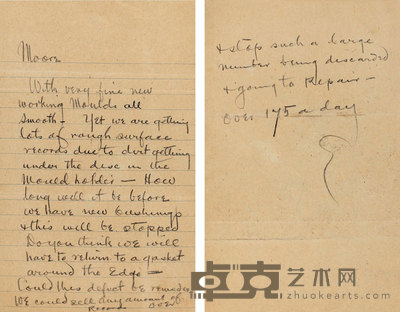 Moore
With very fine new
working Moulds all
smooth - Yet we are getting
lots of rough surface
records due to dirt getting
under the disc in the
Mould holder - How
long will it be before
we have new bushings
& this will be stopped
Do you think we will
have to return to a gasket
around the Edge -
Could this defect be remedied
we could sell any amount of
Records
over
& stop such a large
number being discarded
& going to Repair -
over 175 a day
卓克艺术网
www.zhuokearts.com